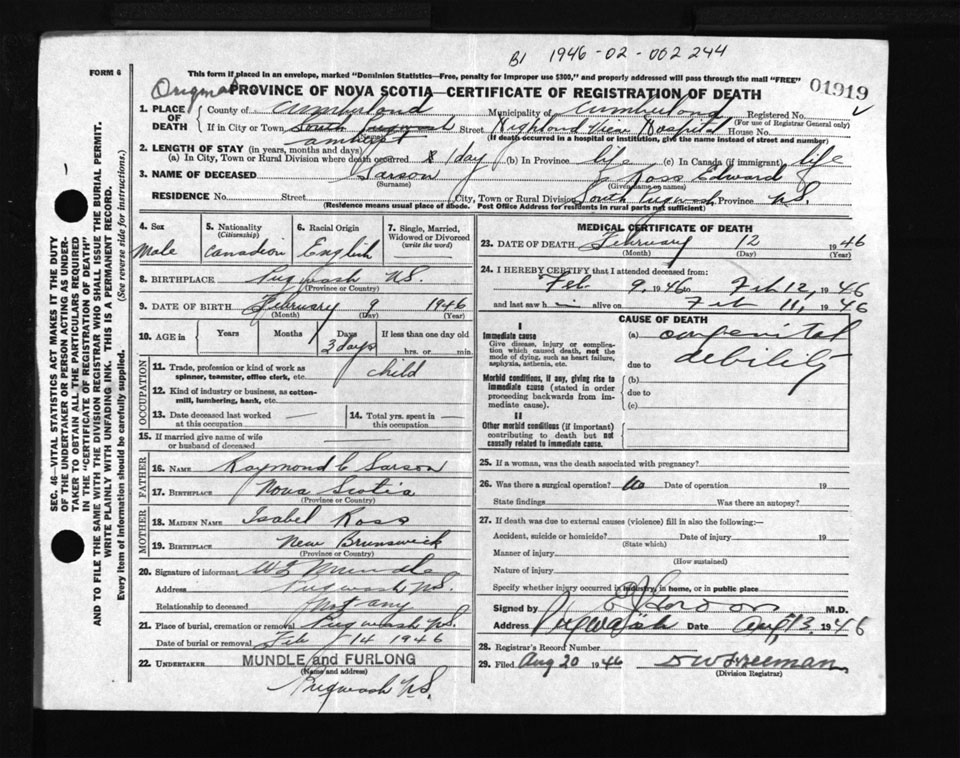 B1 1946-02-002244
FORM 6
This form if placed in an envelope, marked "Dominion Statistics—Free, penalty for improper use $300," and properly addressed will pass through the mail "FREE"
Original
PROVINCE OF NOVA SCOTIA—CERTIFICATE OF REGISTRATION OF DEATH
01919
1. PLACE OF DEATH
County of Cumberland Municipality of Cumberland Registered No.
(For use of Registrar General only)
If in City or Town South Pugwash Street Highland View Hospital House No.
(Name) (If death occurred in a hospital or institution, give the name instead of street and number)
Amherst
2. LENGTH OF STAY (in years, months and days)
(a) In City, Town or Rural Division where death occurred 1 day (b) In Province life (c) In Canada (if immigrant) life
3. NAME OF DECEASED Sarson Ross Edward
(Surname) (Given name or names)
RESIDENCE No. Street City, Town or Rural Division South Pugwash Province N.S.
(Residence means usual place of abode. Post Office Address for residents in rural parts not sufficient)
4. Sex Male
5. Nationality (Citizenship) Canadian
6. Racial Origin English
7. Single, Married, Widowed or Divorced (write the word)
8. BIRTHPLACE Pugwash N.S.
(Province or Country)
9. DATE OF BIRTH February 9 1946
(Month) (Day) (Year)
10. AGE in Years Months Days 3 days If less than one day old
hrs. or min.
OCCUPATION
11. Trade, profession or kind of work as spinner, teamster, office clerk, etc. Child
12. Kind of industry or business, as cotton-mill, lumbering, bank, etc.
13. Date deceased last worked at this occupation
14. Total yrs. spent in this occupation
15. If married give name of wife or husband of deceased
FATHER
16. NAME Raymond C Sarson
17. BIRTHPLACE Nova Scotia
(Province or Country)
MOTHER
18. MAIDEN NAME Isabel Ross
19. BIRTHPLACE New Brunswick
(Province or Country)
20. Signature of informant Mundle
Address Pugwash N.S.
Relationship to deceased Not any
21. Place of burial, cremation or removal Pugwash N.S.
Date of burial or removal Feb 14 1946
22. UNDERTAKER MUNDLE and FURLONG
(Name and address)
Pugwash N.S.
MEDICAL CERTIFICATE OF DEATH
23. DATE OF DEATH February 12 1946
(Month) (Day) (Year)
24. I HEREBY CERTIFY that I attended deceased from:
Feb. 9, 1946 to Feb 12, 1946
and last saw h— alive on Feb 11, 1946
CAUSE OF DEATH
I
Immediate cause
Give disease, injury or complication which caused death, not the mode of dying, such as heart failure, asphyxia, asthenia, etc.
(a) congenital
debility
due to
Morbid conditions, if any, giving rise to immediate cause (stated in order proceeding backwards from immediate cause).
(b)
due to
(c)
II
Other morbid conditions (if important) contributing to death but not causally related to immediate cause.
25. If a woman, was the death associated with pregnancy?
26. Was there a surgical operation? No Date of operation 19
State findings Was there an autopsy?
27. If death was due to external causes (violence) fill in also the following:—
Accident, suicide or homicide? Date of injury 19
(State which)
Manner of injury
(How sustained)
Nature of injury
Specify whether injury occurred in industry, in home, or in public place
Signed by M.D.
Address Pugwash Date Aug 13, 1946
28. Registrar's Record Number
29. Filed Aug 20 1946 D W Freeman
(Division Registrar)
SEC. 46—VITAL STATISTICS ACT MAKES IT THE DUTY
OF THE UNDERTAKER OR PERSON ACTING AS UNDER-
TAKER TO OBTAIN ALL THE PARTICULARS REQUIRED
IN THE "CERTIFICATE OF REGISTRATION OF DEATH"
AND TO FILE THE SAME WITH THE DIVISION REGISTRAR WHO SHALL ISSUE THE BURIAL PERMIT.
WRITE PLAINLY WITH UNFADING INK. THIS IS A PERMANENT RECORD.
Every item of information should be carefully supplied. (See reverse side for instructions.)